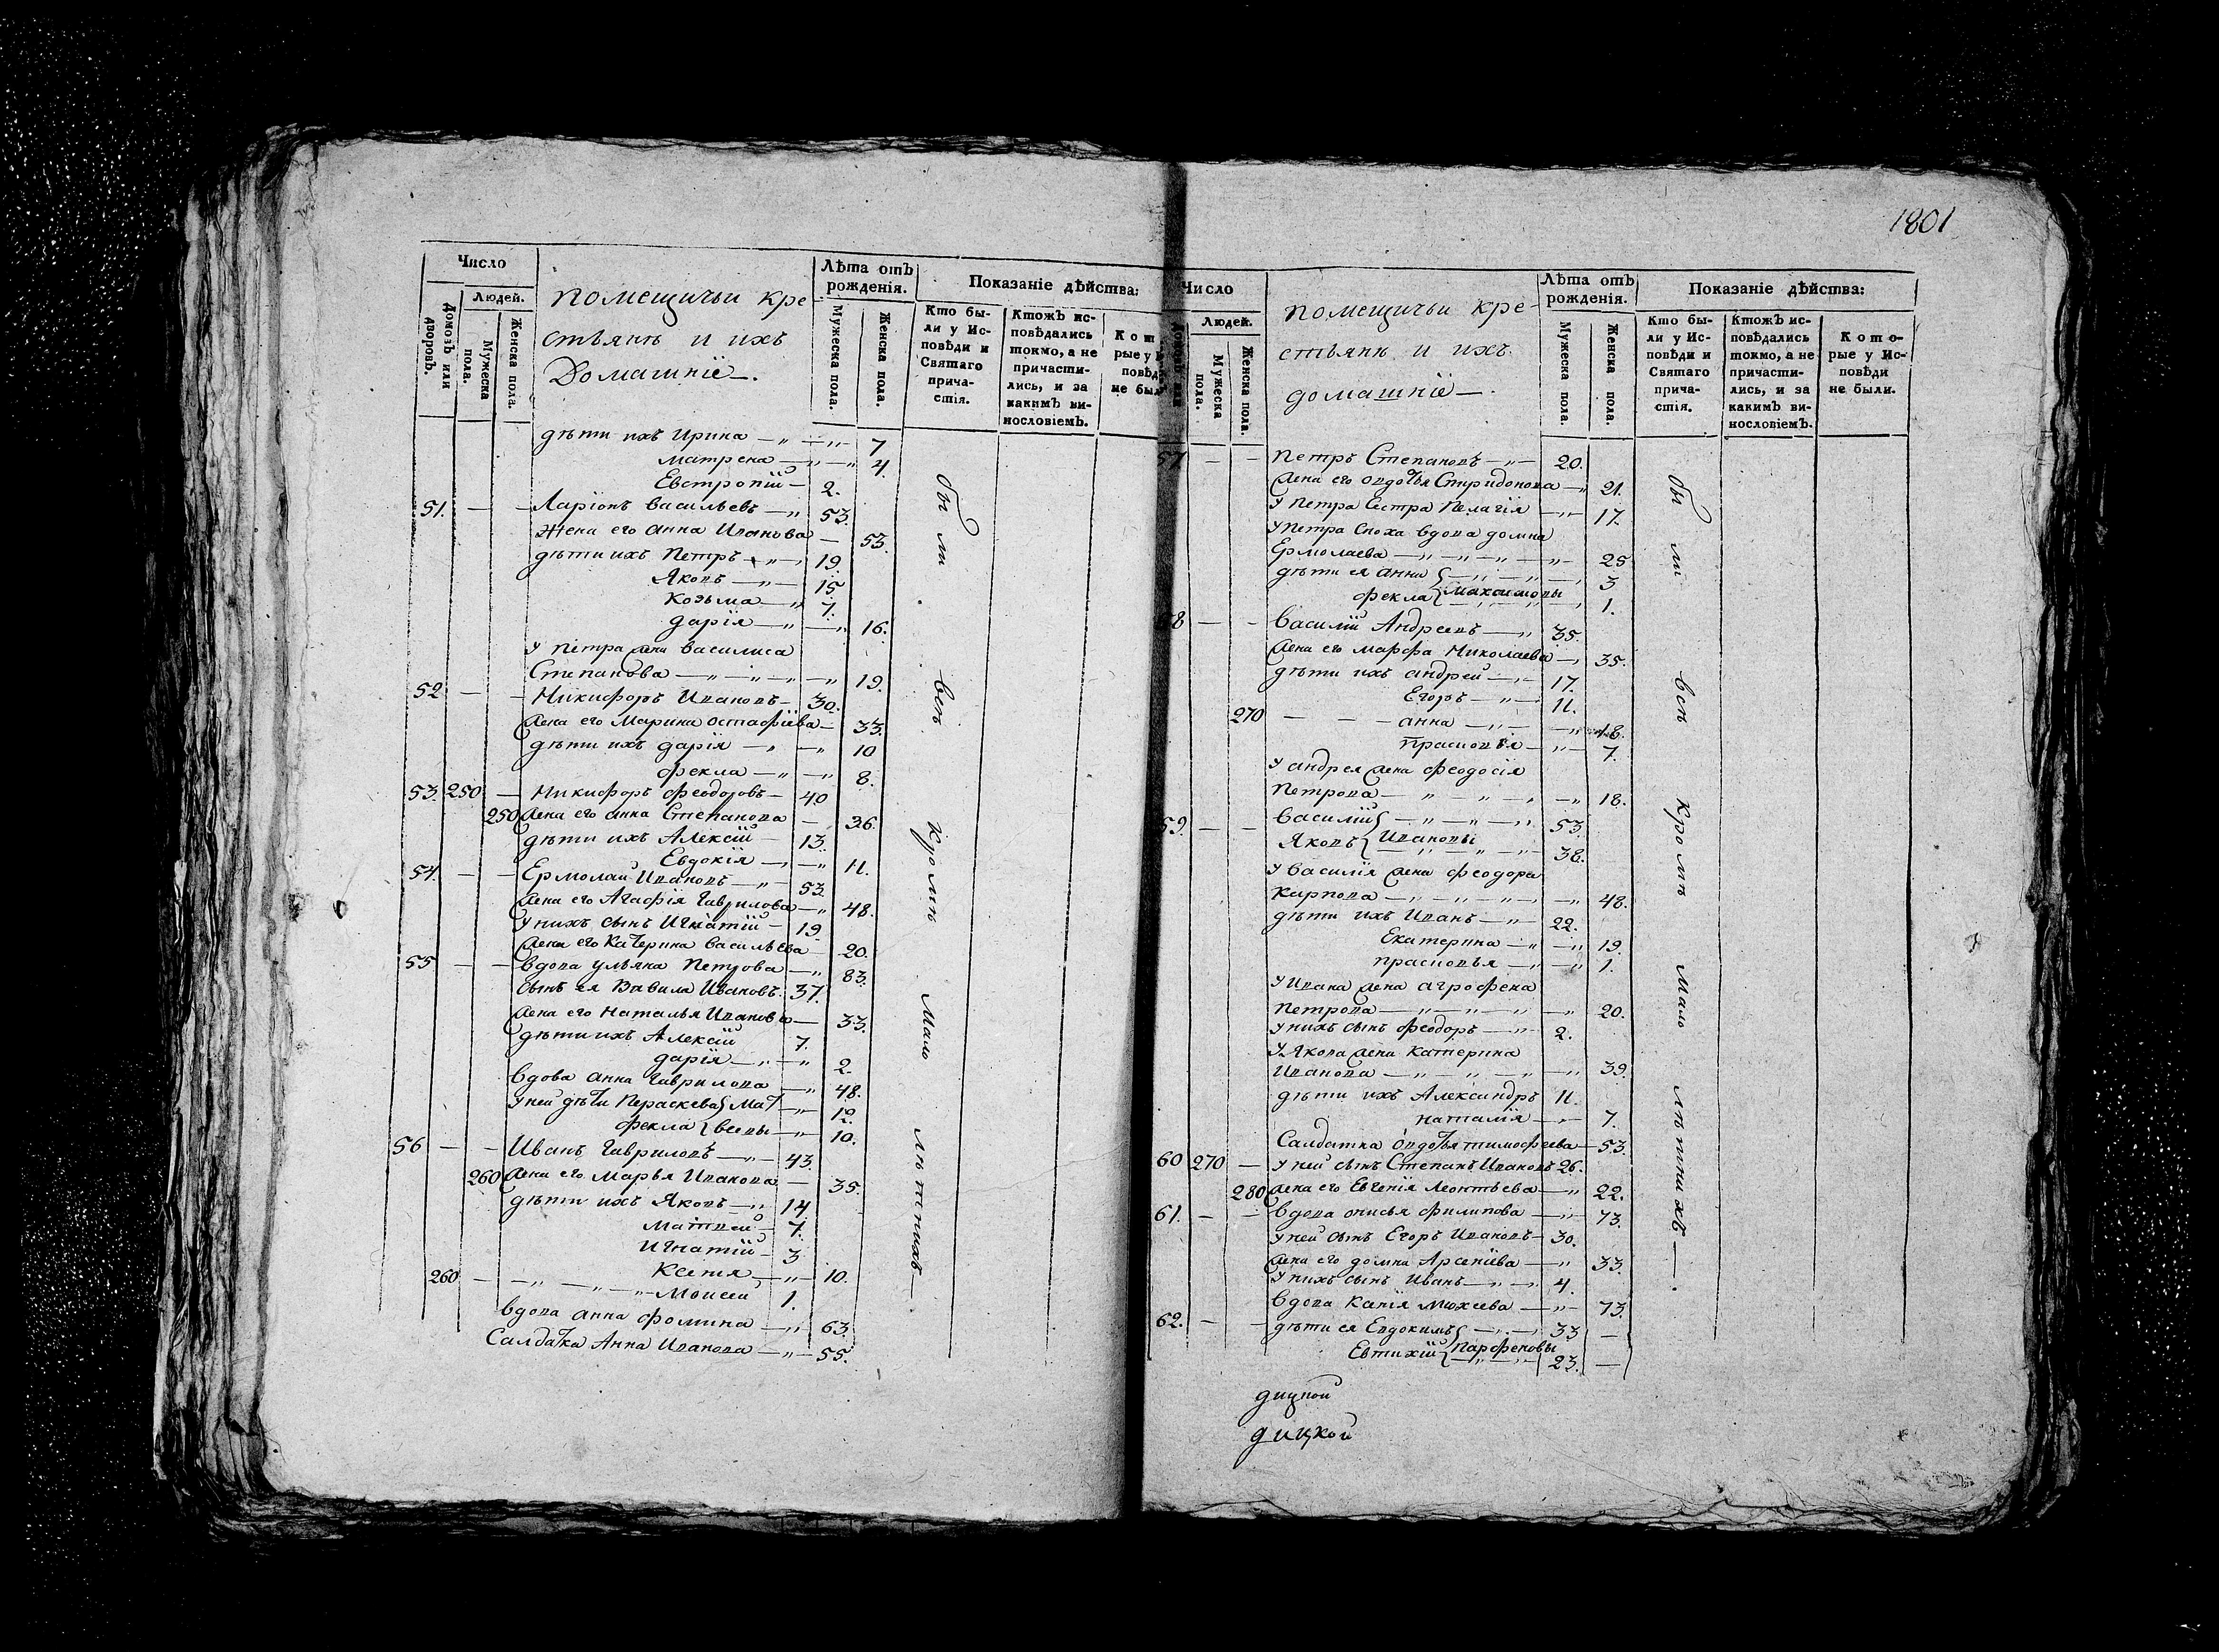 1801
Число
Людей.
Домовъ или дворовъ.
Мужеска пола.
Женска пола.
помещичьи кре
стьяне и ихъ
Домашніе.
Лѣта отъ рожденія.
Мужеска пола.
Женска пола.
Показаніе дѣйства:
Кто бы-
ли у Ис-
повѣди и
Святаго
прича-
стія.
Ктожъ ис-
повѣдались
токмо, а не
причасти-
лись, и за
какимъ ви-
нословіемъ.
Кот
рые у
повѣд
не был
дѣти ихъ Ирина 7
Матрена 4.
Евстропій 2.
51. Ларіонъ Васильевъ 53.
Жена его Анна Иванова 53.
дѣти ихъ Петръ 19.
Яковъ 15
Козьма 7.
дарія 16.
у петра жена Василиса
Степанова 19.
52 Никифоръ Ивановъ 30.
жена его Марина Остафіева 33.
дѣти ихъ дарія 10
фекла 8.
53. 250 Никифоръ Феодоровъ 40
250 жена его анна Степанова 36.
дѣти ихъ Алексій 13.
Евдокія 11.
54. Ермолай Ивановъ 53.
жена его Агафія Гаврилова 48.
у нихъ сынъ Игнатій 19
жена его Катерина Васильева 20.
55 вдова ульяна Петрова 83.
сынъ ея Вавила Ивановъ. 37.
жена его Наталья Иванова 33.
дѣти ихъ Алексій 7.
дарія 2.
вдова анна Гаврилова 48.
у ней дѣти Пераскева Мат 12.
фекла вѣевы 10.
56 Иванъ Гавриловъ 43.
260 жена его Марья Иванова 35.
дѣти ихъ Яковъ 14
Матвей 7.
Игнатій 3
Ксенія 10.
260 Моисей 1.
вдова анна фомина 63.
Салдатка Анна Иванова 55.
были всѣ Кромѣ Мало лѣтнихъ
Число
Людей.
Мужеска пола.
Женска пола.
помещичьи кре-
стьяне и ихъ
домашніе
Лѣта отъ рожденія.
Мужеска пола.
Женска пола.
Показаніе дѣйства:
Кто бы-
ли у Ис-
повѣди и
Святаго
прича-
стія.
Ктожъ ис-
повѣдались
токмо, а не
причасти-
лись, и за
какимъ ви-
нословіемъ.
Кото-
рые у Ис-
повѣди
не были.
57 петръ Степановъ 20.
жена его овдотья Спридонова 21.
у Петра Сестра Пелагія 17.
у Петра Сноха вдова домна
Ермолаева 25
дѣти ея анна 3
фекла Максимовы 1.
58 Василій Андреевъ 35.
жена его марфа Николаева 35.
дѣти ихъ андрей 17.
Егоръ 11.
270 анна 18.
прасковья 7.
у андрея жена феодосія
петрова 18.
59. василій 53.
Яковъ Ивановы 38.
у Василія жена феодора
карпова 48.
дѣти ихъ Иванъ 22.
Екатерина 19.
прасковья 1.
у Ивана жена агрофена
петрова 20.
у нихъ сынъ феодоръ 2.
у Якова жена катерина
Иванова 39.
дѣти ихъ Александръ 11.
наталія 7.
Салдатка Овдотья тимофеева 53.
60 270 у ней сынъ Степанъ Ивановъ 26.
280 жена его Евгенія Леонтьева 22.
61. вдова онисья филипова 73.
у ней сынъ Егоръ Ивановъ 30.
жена его домна Арсеніева 33.
у нихъ сынъ Иванъ 4.
вдова Ксенія Мохеева 73.
62. дѣти ея Евдокимъ 33
Евтихій Парфеновы 23.
были всѣ Кромѣ Мало лѣтнихъ
дицкой